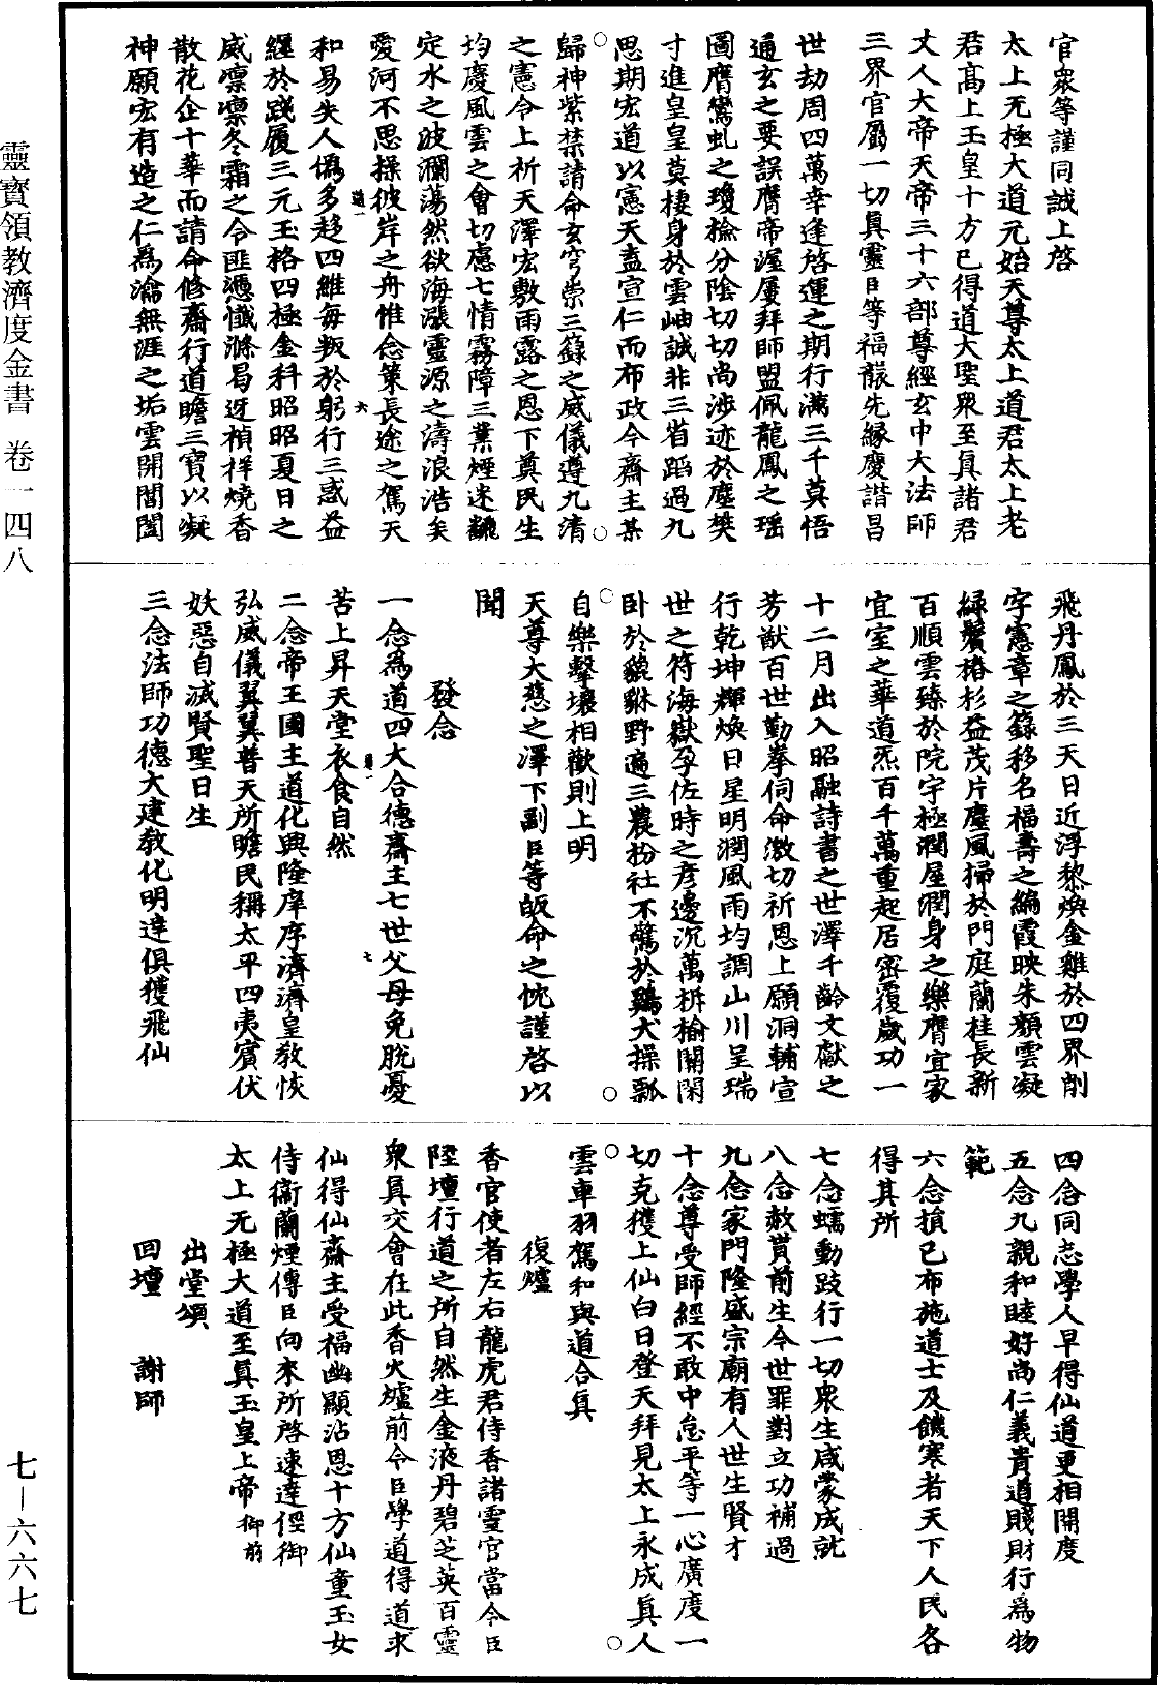 官眾等謹同誠上啓
太上无極大道元始天尊太上道君太上老
君高上玉皇十方已得道大聖眾至真諸君
丈人大帝天帝三十六部尊經玄中大法師
三界官屬一切真靈臣等福龎先緣慶諧昌
世劫周四萬幸逢啓運之期行滿三千莫悟
通玄之要誤膺帝渥屢拜師盟佩龍鳳之瑶
圖膺鸞虬之瓊檢分陰切切尚涉迹於塵樊
寸進皇皇莫棲身於雲岫誠非三省蹈過九
思期宏道以憲天盍宣仁而布政今齋主某
歸神紫禁請命玄穹崇三籙之威儀遵九清
之憲令上祈天澤宏敷雨露之恩下冀民生
均慶風雲之會切慮七情霧障三業煙迷飜
定水之波瀾蕩然欲海漲靈源之濤浪浩矣
愛河不思操彼岸之舟惟念策長途之駕天
和易失人僞多趍四維每叛於躬行三惑益
纒於踐履三元玉格四極金科昭昭夏日之
威凛凛冬霜之令匪憑懺滌曷迓禎祥燒香
散花企十華而請命修齋行道瞻三寶以凝
神願宏有造之仁爲瀹無涯之垢雲開閶闔
飛丹鳳於三天日近浮黎煥金雞於四界削
字憲章之籙移名福壽之編霞映朱顏雲凝
緑鬢椿杉益茂片塵風掃於門庭蘭桂長新
百順雲臻於院宇極潤屋潤身之樂膺宜家
宜室之華道炁百千萬重起居密覆歲功一
十二月出入昭融詩書之世澤千齡文獻之
芳猷百世勤拳伺命激切祈恩上願洞輔宣
行乾坤輝煥日星明潤風雨均調山川呈瑞
世之符海嶽孕佐時之彦邊沉萬柝榆關閑
卧於貔貅野遍三農枌社不驚於鷄犬操瓢
自樂擊壤相歡則上明
天尊大慈之澤下副臣等皈命之忱謹啓以
聞
發念
一念爲道四大合德齋主七世父母免脫憂
苦上昇天堂衣食自然
二念帝王國主道化興隆庠序濟濟皇教恢
弘威儀翼翼普天所瞻民稱太平四夷賓伏
妖惡自滅賢聖日生
三念法師功德大建教化明達俱獲飛仙
四念同志學人早得仙道更相開度
五念九親和睦好尚仁義貴道賤財行爲物
範
六念損己布施道士及饑寒者天下人民各
得其所
七念蠕動跂行一切衆生咸蒙成就
八念赦貰前生今世罪對立功補過
九念家門隆盛宗廟有人世生賢才
十念尊受師經不敢中怠平等一心廣度一
切克獲上仙白日登天拜見太上永成真人
雲車羽駕和與道合真
復爐
香官使者左右龍虎君侍香諸靈官當令臣
陞壇行道之所自然生金液丹碧芝英百靈
衆真交會在此香火爐前令臣學道得道求
仙得仙齋主受福幽顯沾恩十方仙童玉女
侍衛蘭煙傳臣向來所啓速達俓御
太上无極大道至真玉皇上帝 御前
出堂頌
回壇 謝師
靈寶領教濟度金書 卷一四八
七—六六七